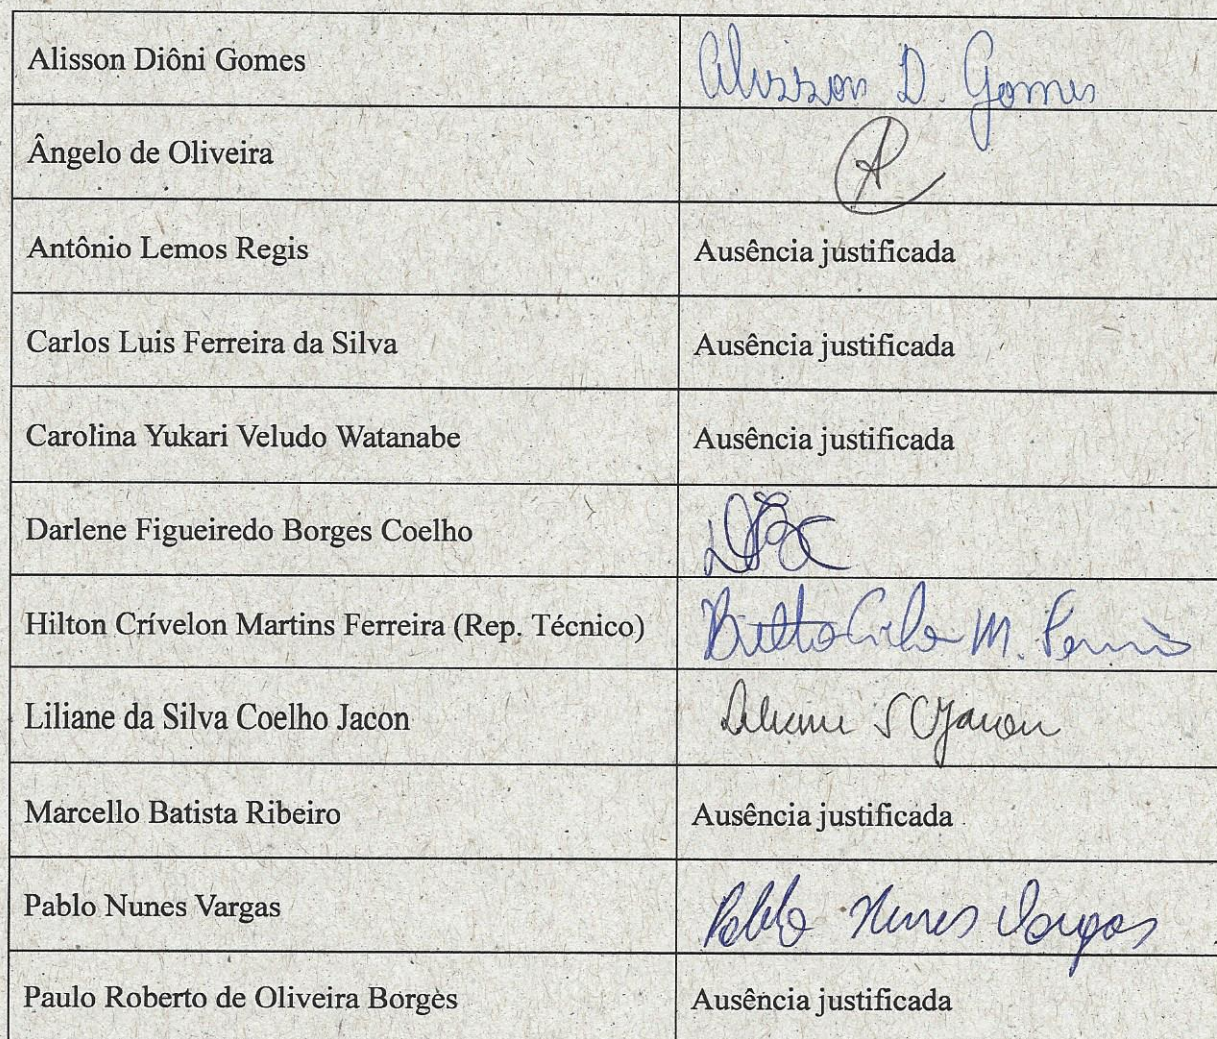 Alisson Diôni Gomes
Alisson D. Gomes
Ângelo de Oliveira
Antônio Lemos Regis
Ausência justificada
Carlos Luis Ferreira da Silva
Ausência justificada
Carolina Yukari Veludo Watanabe
Ausência justificada
Darlene Figueiredo Borges Coelho
Hilton Crívelon Martins Ferreira (Rep. Técnico)
Liliane da Silva Coelho Jacon
Marcello Batista Ribeiro
Ausência justificada
Pablo Nunes Vargas
Pablo Nunes Vargas
Paulo Roberto de Oliveira Borges
Ausência justificada